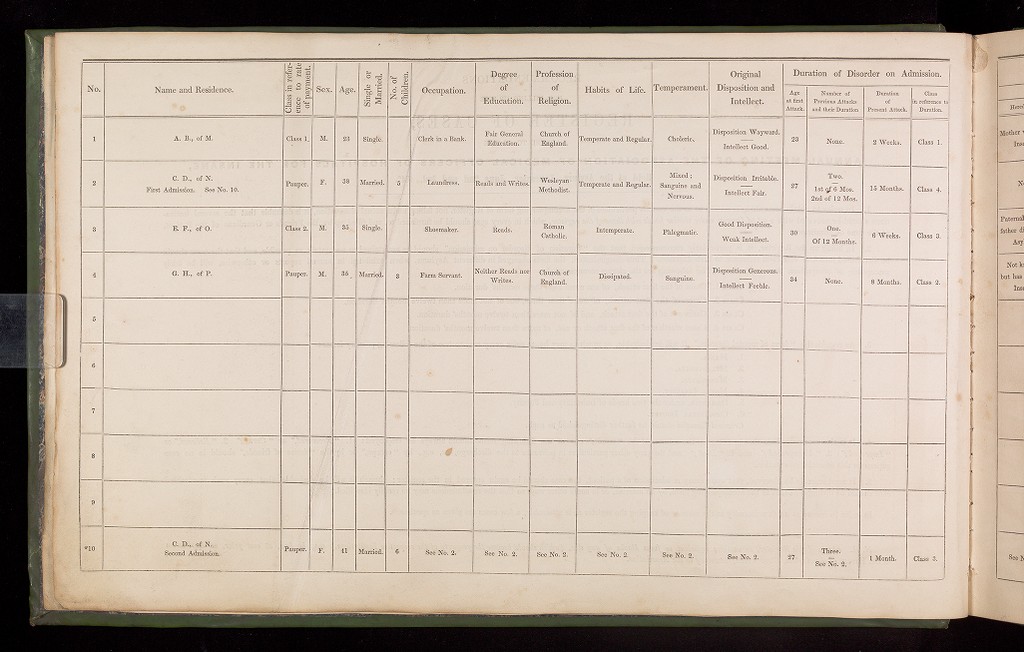 No. Name and Residence. Class in refer-ence to rate of payment. Sex. Age. Single or Married. No. of Children. Occupation. Degree of Education. Profession of Religion. Habits of Life. Temperament. Original Disposition and Intellect. Duration of Disorder on Admission.
Age at first Attack. Number of Previous Attacks and their Duration Duration of Present Attack. Class in reference to Duration.
1 A. B., of M. Class 1. M. 23 Single. Clerk in a Bank. Fair General Education. Church of England. Temperate and Regular. Choleric. Disposition Wayward. Intellect Good. 23 None. 2 Weeks. Class 1.
2 C. D., of N. First Admission. See No. 10. Pauper. F. 30 Married. 5 Laundress. Reads and Writes. Wesleyan Methodist. Temperate and Regular. Mixed; Sanguine and Nervous. Disposition Irritable. Intellect Fair. 27 Two. 1st of 6 Mos. 2nd of 12 Mos. 15 Months. Class 4.
3 E. F., of O. Class 2. M. 35 Single. Shoemaker. Reads. Roman Catholic. Intemperate. Phlegmatic. Good Disposition. Weak Intellect. 30 One. Of 12 Months. 6 Weeks. Class 3.
4 G. H., of P. Pauper. M. 35 Married. 3 Farm Servant. Neither Reads nor Writes. Church of England. Dissipated. Sanguine. Disposition Generous. Intellect Feeble. 34 None. 8 Months. Class 2.
5
6
7
8
9
*10 C. D., of N. Second Admission. Pauper. F. 41 Married. 6 See No. 2. See No. 2. See No. 2. See No. 2. See No. 2. See No. 2. 27 Three. See No. 2. 1 Month. Class 3.
Mother
Not
but has
See